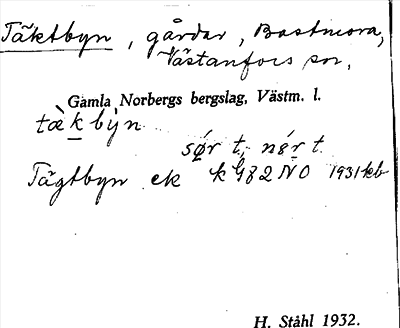 Täktbyn, gårdar, Bastmora,
Västanfors sn,
Gamla Norbergs bergslag, Västm. l.
tæ̀k býn
sør t, nør t
Tägtbyn ek k G82NO 1931 kb
H. Ståhl 1932.